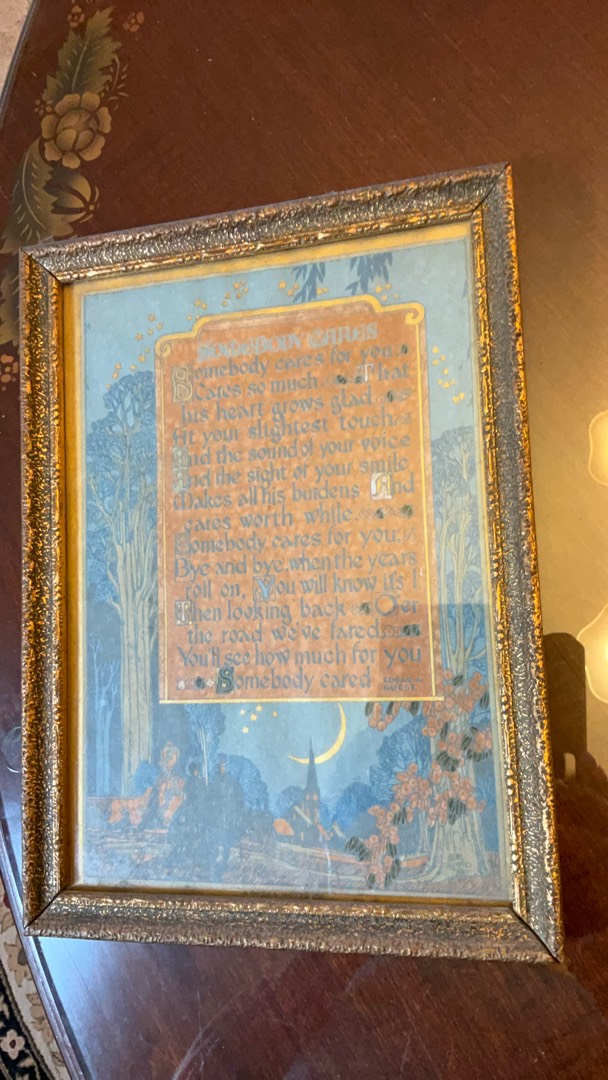 SOMEBODY CARES
Somebody cares for you
Cares so much That
his heart grows glad
At your slightest touch
And the sound of your voice
And the sight of your smile
Makes all his burdens And
cares worth while.
Somebody cares for you;
Bye and bye, when the years
roll on, You will know it's I
Then looking back Over
the road we've fared
You'll see how much for you
Somebody cared EDGAR A.
GUEST